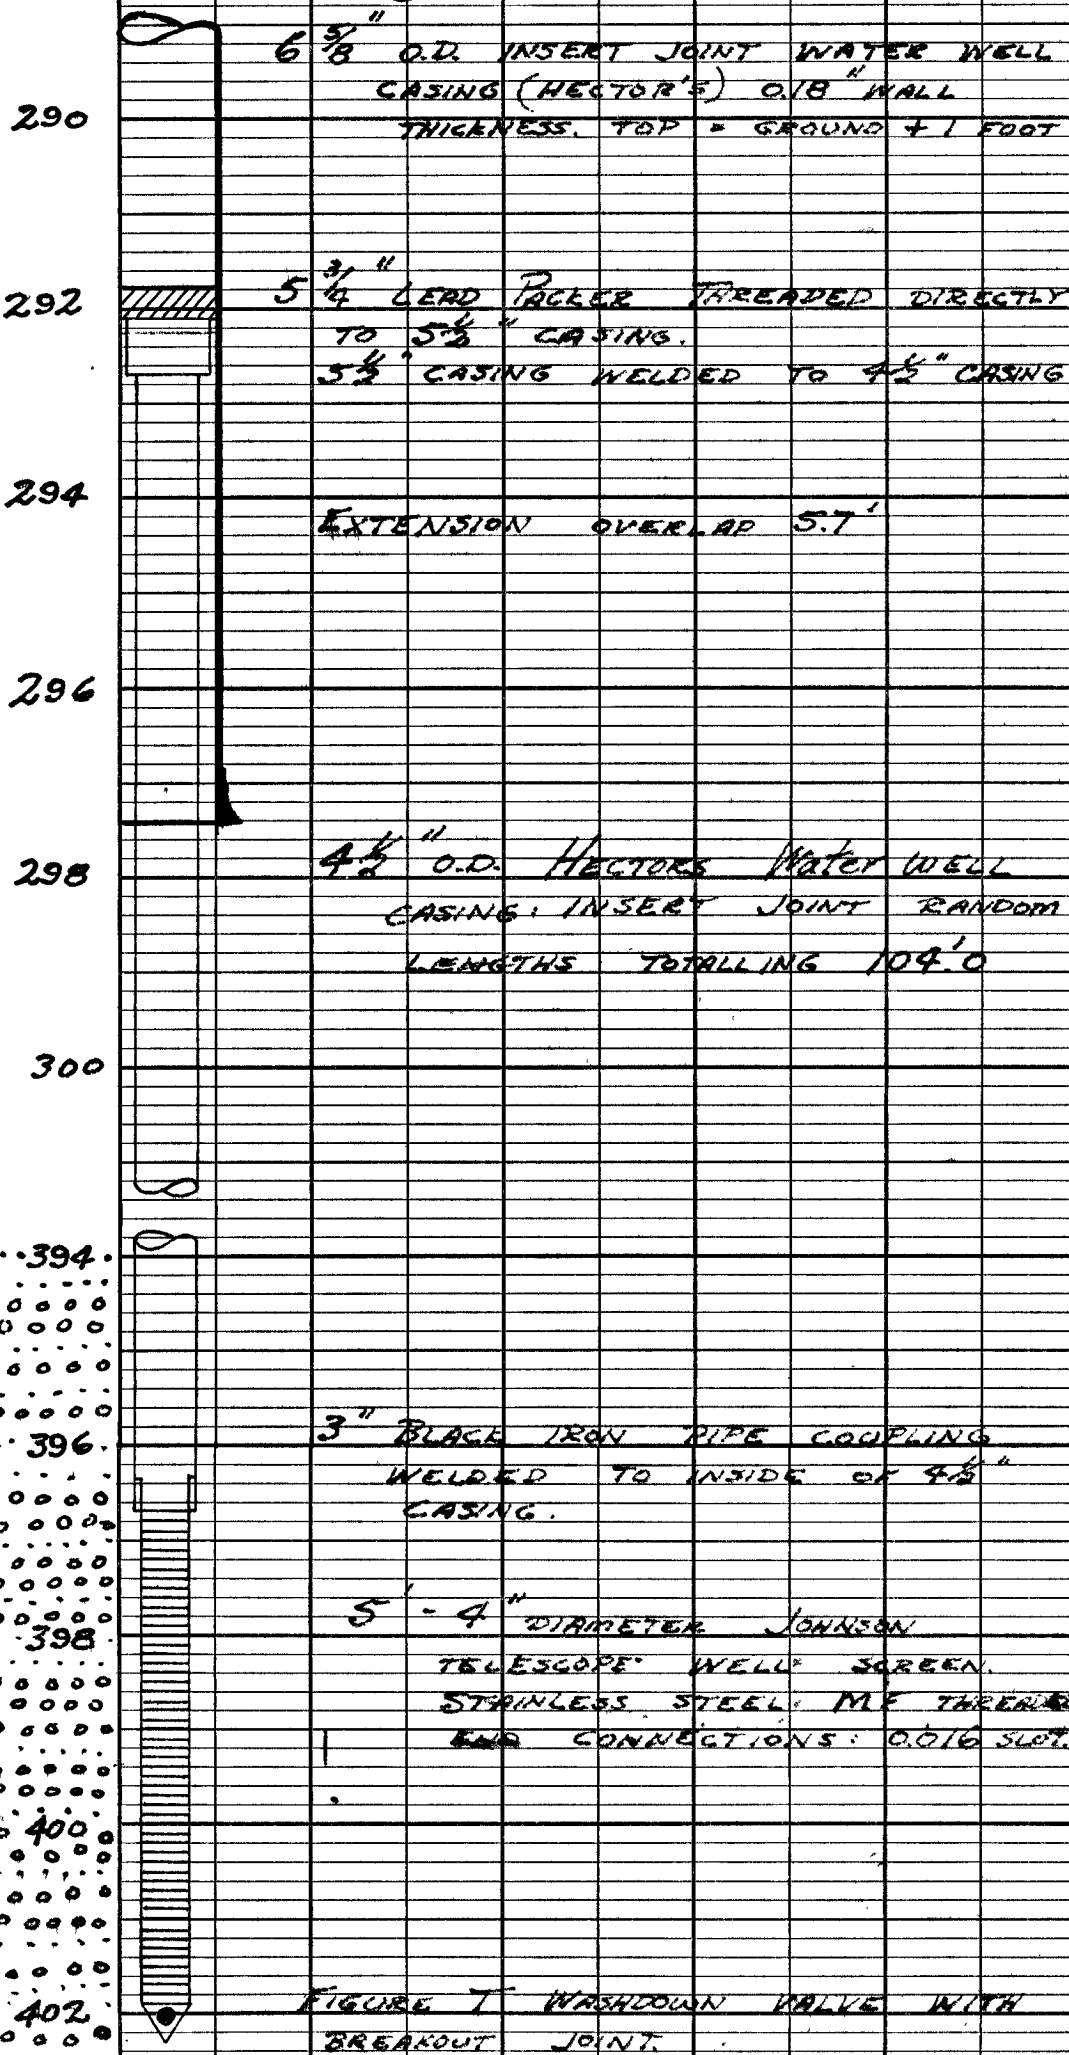 6 5/8" O.D. INSERT JOINT WATER WELL
CASING (HECTOR'S) 0.18" WALL
290
THICKNESS. TOP = GROUND + 1 FOOT
292
5 3/4" LEAD PACKER THREADED DIRECTLY
TO 5 1/2" CASING.
5 1/2" CASING WELDED TO 4 1/2" CASING
294
EXTENSION OVERLAP 5.7'
296
298
4 1/2" O.D. HECTORS Water WELL
CASING: INSERT JOINT RANDOM
LENGTHS TOTALLING 104.'0
300
394
396
3" BLACK IRON PIPE COUPLING
WELDED TO INSIDE OF 4 1/2"
CASING.
398
5' - 4" DIAMETER JOHNSON
TELESCOPE WELL SCREEN.
STAINLESS STEEL: MF THREADED
END CONNECTIONS: 0.016 SLOT.
400
402
FIGURE 7 WASHDOWN VALVE WITH
BREAKOUT JOINT.